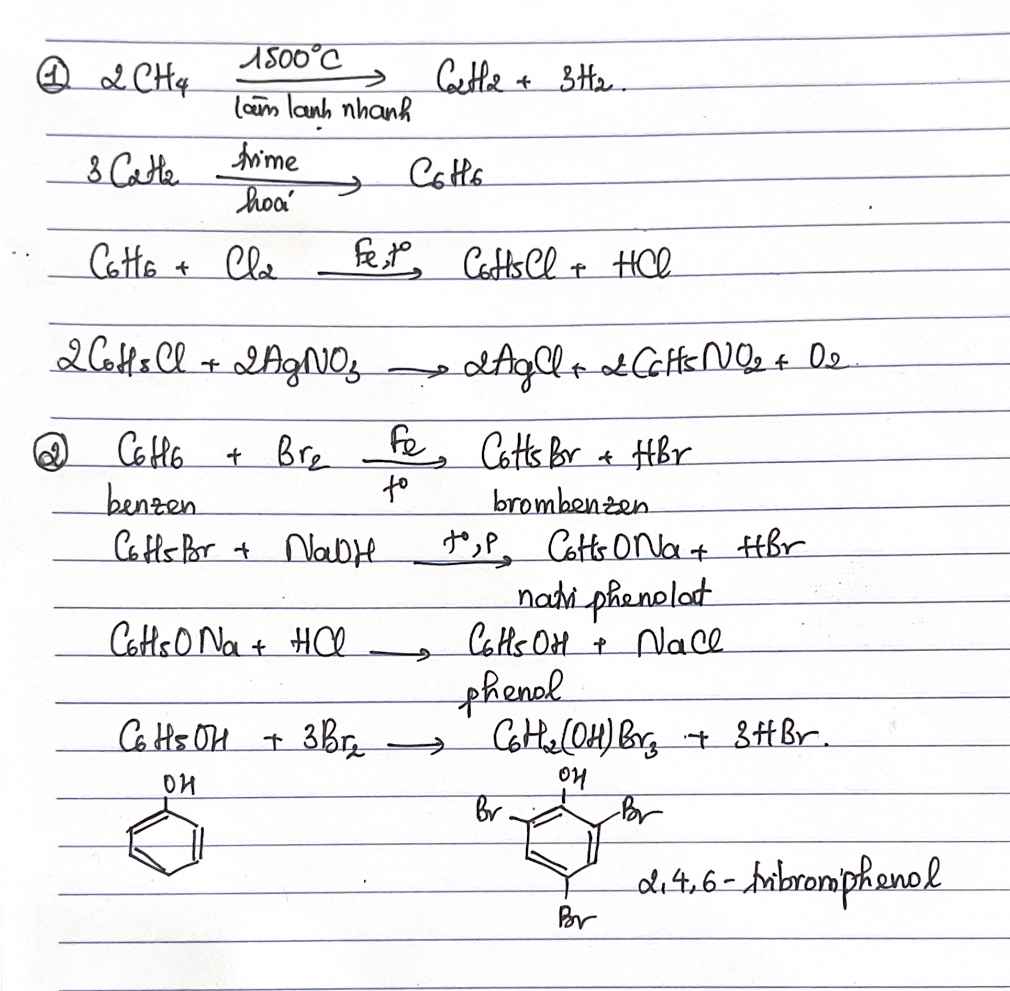 ① 2CH₄ 1500°C → C₂H₂ + 3H₂.
làm lạnh nhanh
3C₂H₂ trime → C₆H₆
hoá
C₆H₆ + Cl₂ Fe,t° → C₆H₅Cl + HCl
2C₆H₅Cl + 2AgNO₃ → 2AgCl + 2C₆H₅NO₂ + O₂
② C₆H₆ + Br₂ Fe → t° C₆H₅Br + HBr
benzen brombenzen
C₆H₅Br + NaOH t°,P → C₆H₅ONa + HBr
natri phenolat
C₆H₅ONa + HCl → C₆H₅OH + NaCl
phenol
C₆H₅OH + 3Br₂ → C₆H₂(OH)Br₃ + 3HBr.
OH OH
Br Br
2,4,6-tribromphenol
Br